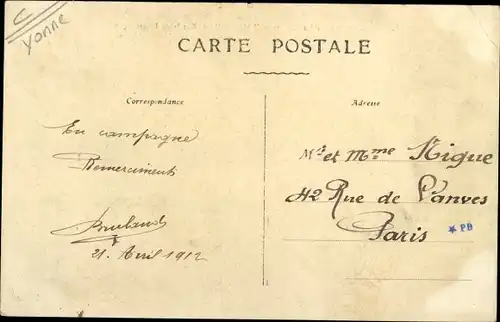 C
Yonne
CARTE POSTALE
Correspondance
Adresse
En campagne
Remerciments
21. Avril 1912
Mr et Mme Nigue
42 Rue de Vanves
Paris
* PB